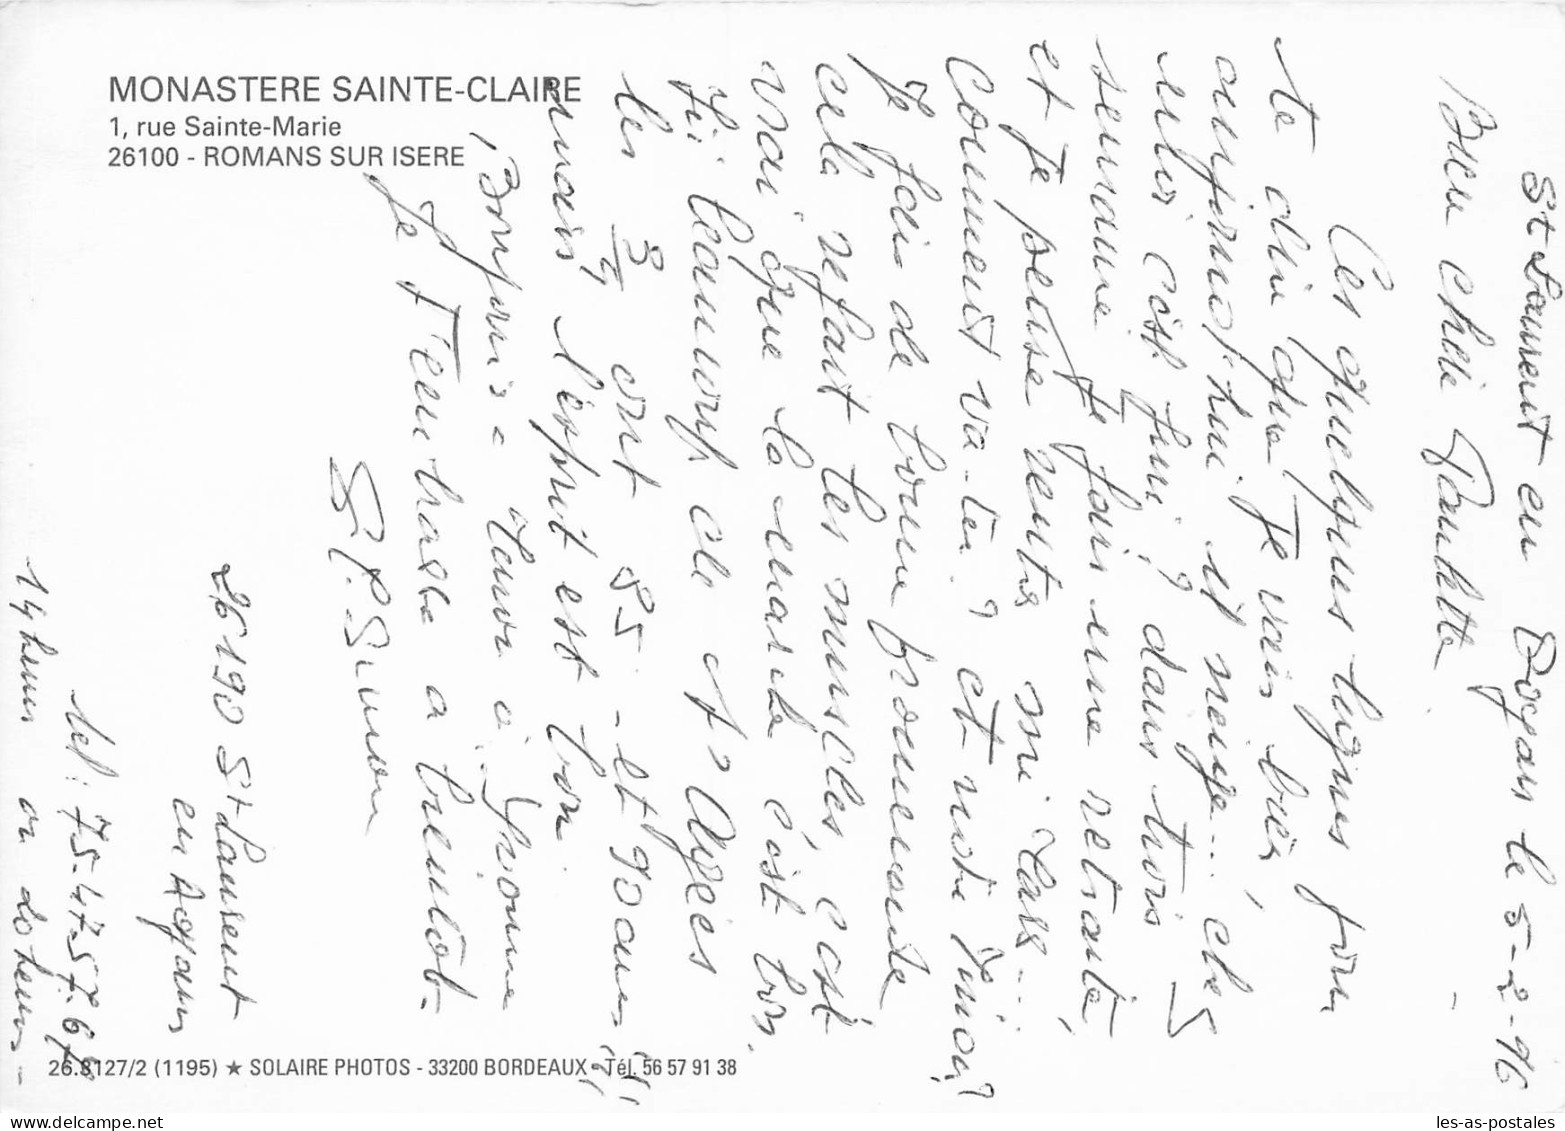 MONASTERE SAINTE-CLAIRE
1, rue Sainte-Marie
26100 - ROMANS SUR ISERE
St Laurent en Royans le 5-2-96
Bien chère Paulette
Ces quelques lignes pour
te dire que Je vais bien,
aujourd'hui il neige... chez
celui c'est fini? dans trois
semaine Je fais une retraite,
et Je pense rentre
Comment va-tu? et
Je fais de bonne promenade
cela refait les muscles, c'est
vrai que la marche c'est bon.
Ici beaucoup de Agées
les 3/4 ont 85 - et 90 ans
mais l'esprit est bon.
Bonjour à
Je t'embrasse a bientôt.
S.P. Simon
26190 St Laurent
en Royans
tel: 75-47-57-67
14 heures ou 20 heures -
26.8127/2 (1195) ★ SOLAIRE PHOTOS - 33200 BORDEAUX - Tél. 56 57 91 38
les-as-postales